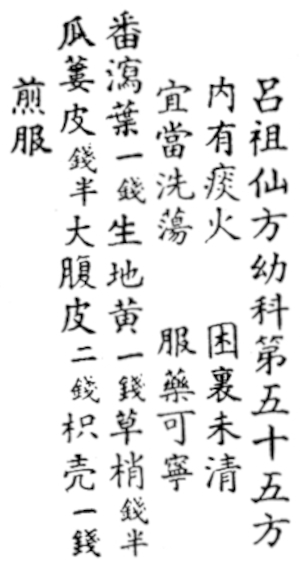 呂祖仙方幼科第五十五方
內有痰火　困裏未清
宜當洗蕩　服藥可寧
番瀉葉一錢生地黃一錢草梢錢半
瓜蔞皮錢半大腹皮二錢枳壳一錢
煎服